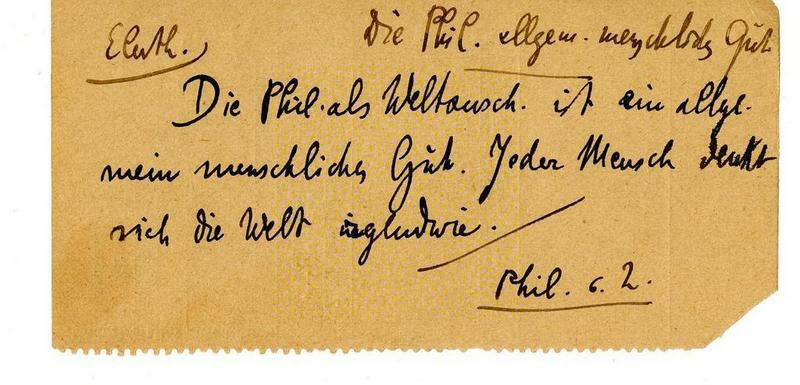 Eleuth. Die Phil. allgem. menschliches Gut
Die Phil. als Weltansch. ist ein allge-
mein menschliches Gut. Jeder Mensch denkt
sich die Welt irgendwie.
Phil. c. 2.